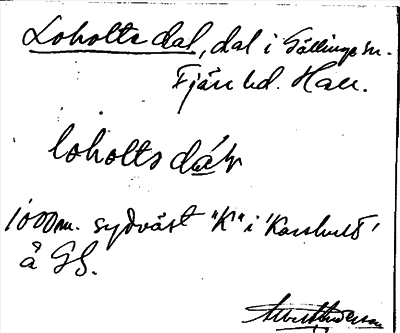 Loholts dal, dal i Gällinge sn.
Fjäre hd. Hall.
loholts dáḷ
1000 m. sydväst "K" i 'Karshult'
å GS.
Albert Anderson